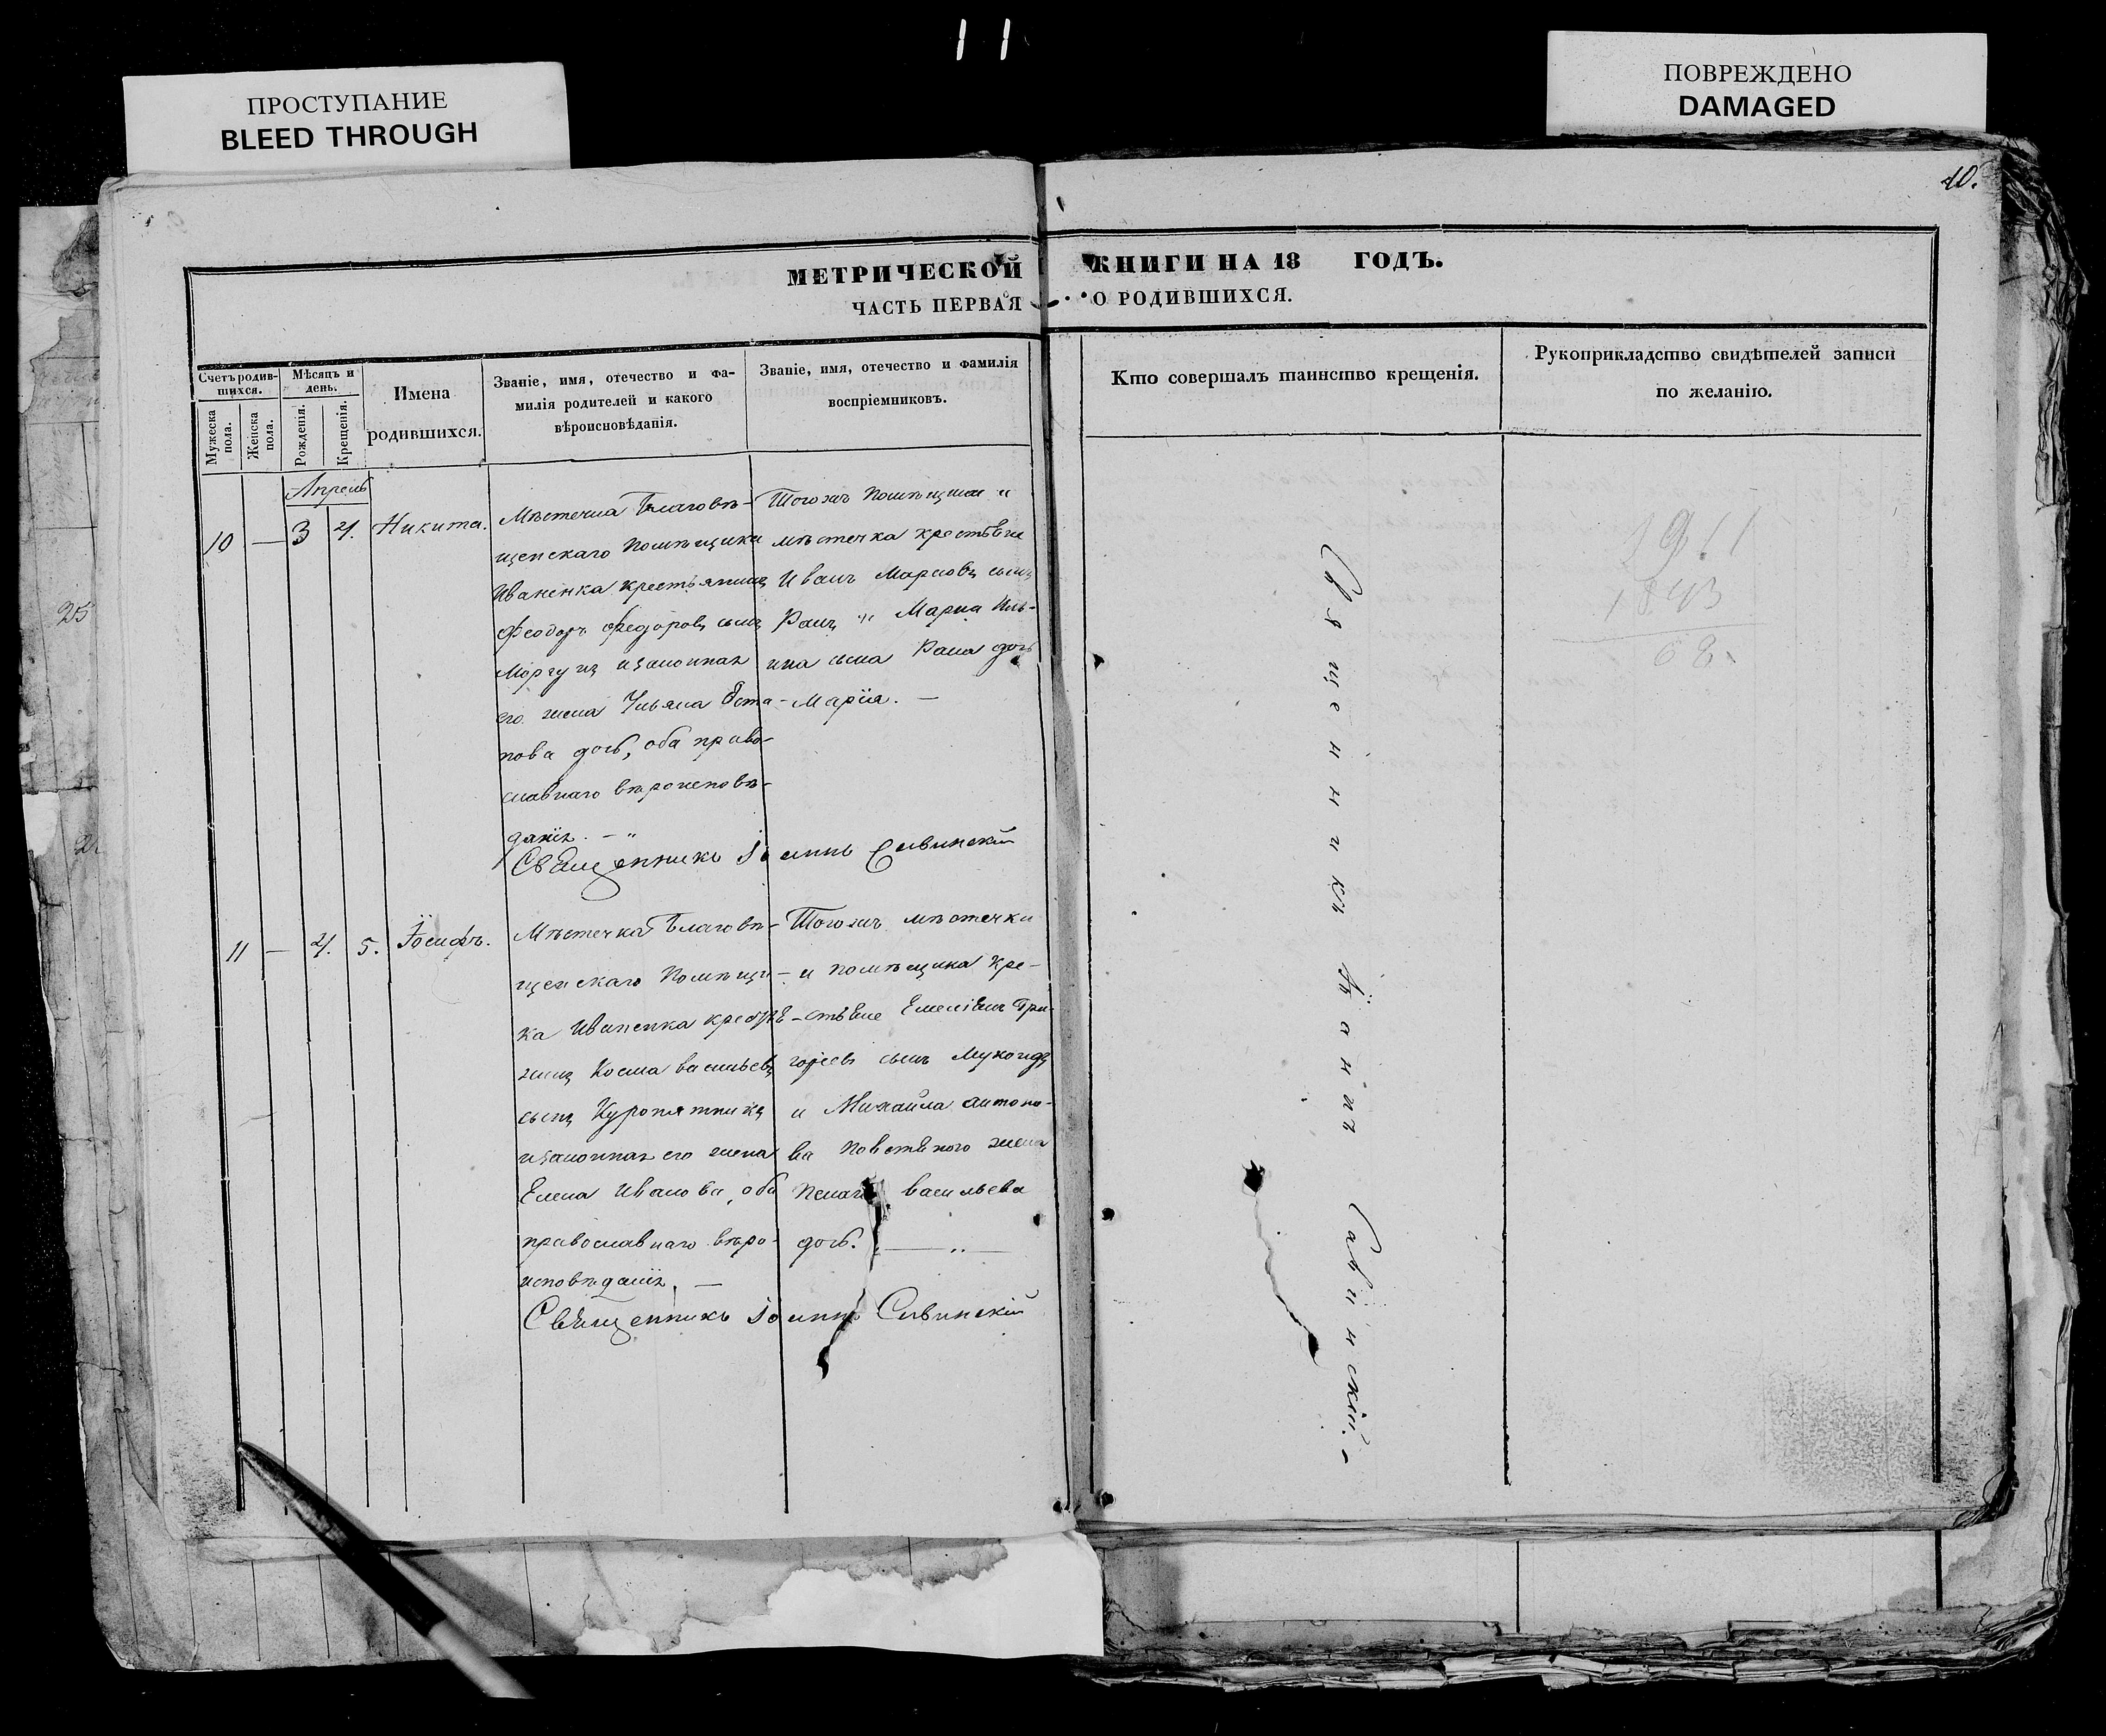 11
ПРОСТУПАНИЕ
BLEED THROUGH
ПОВРЕЖДЕНО
DAMAGED
10.
МЕТРИЧЕСКОЙ КНИГИ НА 18 ГОДЪ.
ЧАСТЬ ПЕРВАЯ О РОДИВШИХСЯ.
Счетъ родив-
шихся.
Мужеска
пола.
Женска
пола.
Мѣсяцъ и
день.
Рожденія.
Крещенія.
Имена
родившихся.
Званіе, имя, отечество и фа-
милія родителей и какого
вѣроисновѣданія.
Званіе, имя, отечество и фамилія
воспріемниковъ.
Кто совершалъ таинство крещенія.
Рукоприкладство свидѣтелей записи
по желанію.
Апрель
10 — 3 4. Никита.
Мѣстечка Благовѣ-
щенскаго Помѣщика
Иваненка крестьянинъ
Феодоръ Федоровъ сынъ
его жена Ульяна Оста-
пова дочь, оба право-
славнаго вѣроисповѣ-
данія. — „
Тогожъ Помѣщика и
мѣстечка
Иванъ Марковъ сынъ
Рацъ и Марка
сына Раца дочь
Марія. —
Священникъ Іоаннъ Савинскій
11 — 4. 5. Іосифъ.
Мѣстечка Благовѣ-
щенскаго Помѣщи-
ка Иваненка кресть-
янинъ Косма васильевъ
сынъ Куропятникъ
и законная его жена
Елена Иванова, оба
православнаго вѣро-
исповѣданія. —
Тогожъ мѣстечка
и помѣщика кре-
стьяне Емеліанъ Гри-
горіевъ сынъ Мукоидъ
и Михайла Антоно-
ва жена
васильева
дочь. — „ —
Священникъ Іоаннъ Савинскій
Священникъ Іоаннъ Савинскій. –
1911
1843
68
25